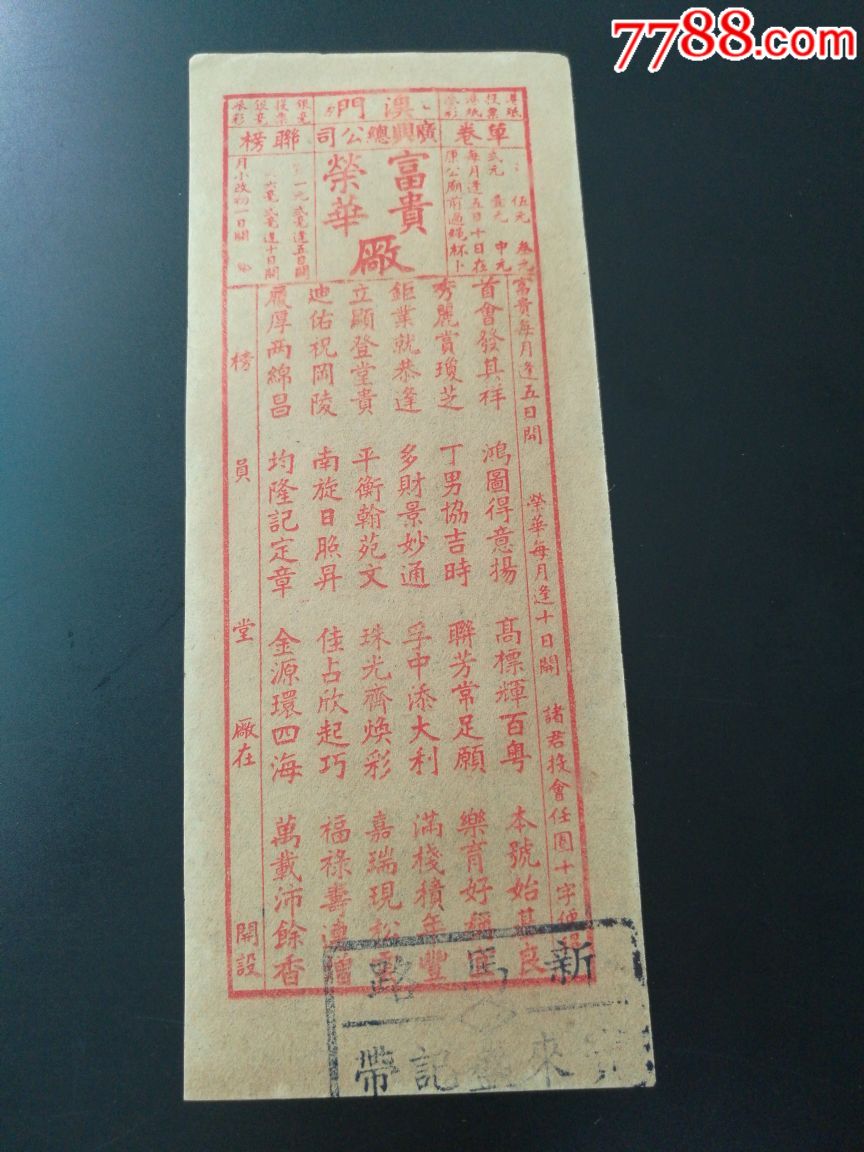 7788.com
澳門
廣興總公司
單卷
聯榜
富貴
榮華
廠
伍元 叁元
弍元 壹元 中元
每月逢五日十日在
康公廟前過繩杯卜
一元弍毫逢五日開
六毫弍毫逢十日開
月小改初一日開
富貴每月逢五日開 榮華每月逢十日開 諸君投會任圈十字便
首會發其祥 鴻圖得意揚 高標輝百粤 本號始其良
秀麗賞瓊芝 丁男協吉時 聯芳常足願 樂育好稱
鉅業就恭逢 多財景妙通 孚中添大利 滿棧積年豐
立顯登堂貴 平衡翰苑文 珠光齊煥彩 嘉瑞現松
迪佑祝岡陵 南旋日照昇 佳占欣起巧 福祿壽連增
履厚两綿昌 均隆記定章 金源環四海 萬載沛餘香
榜員堂 廠在 開設
新馬路
來益記帶